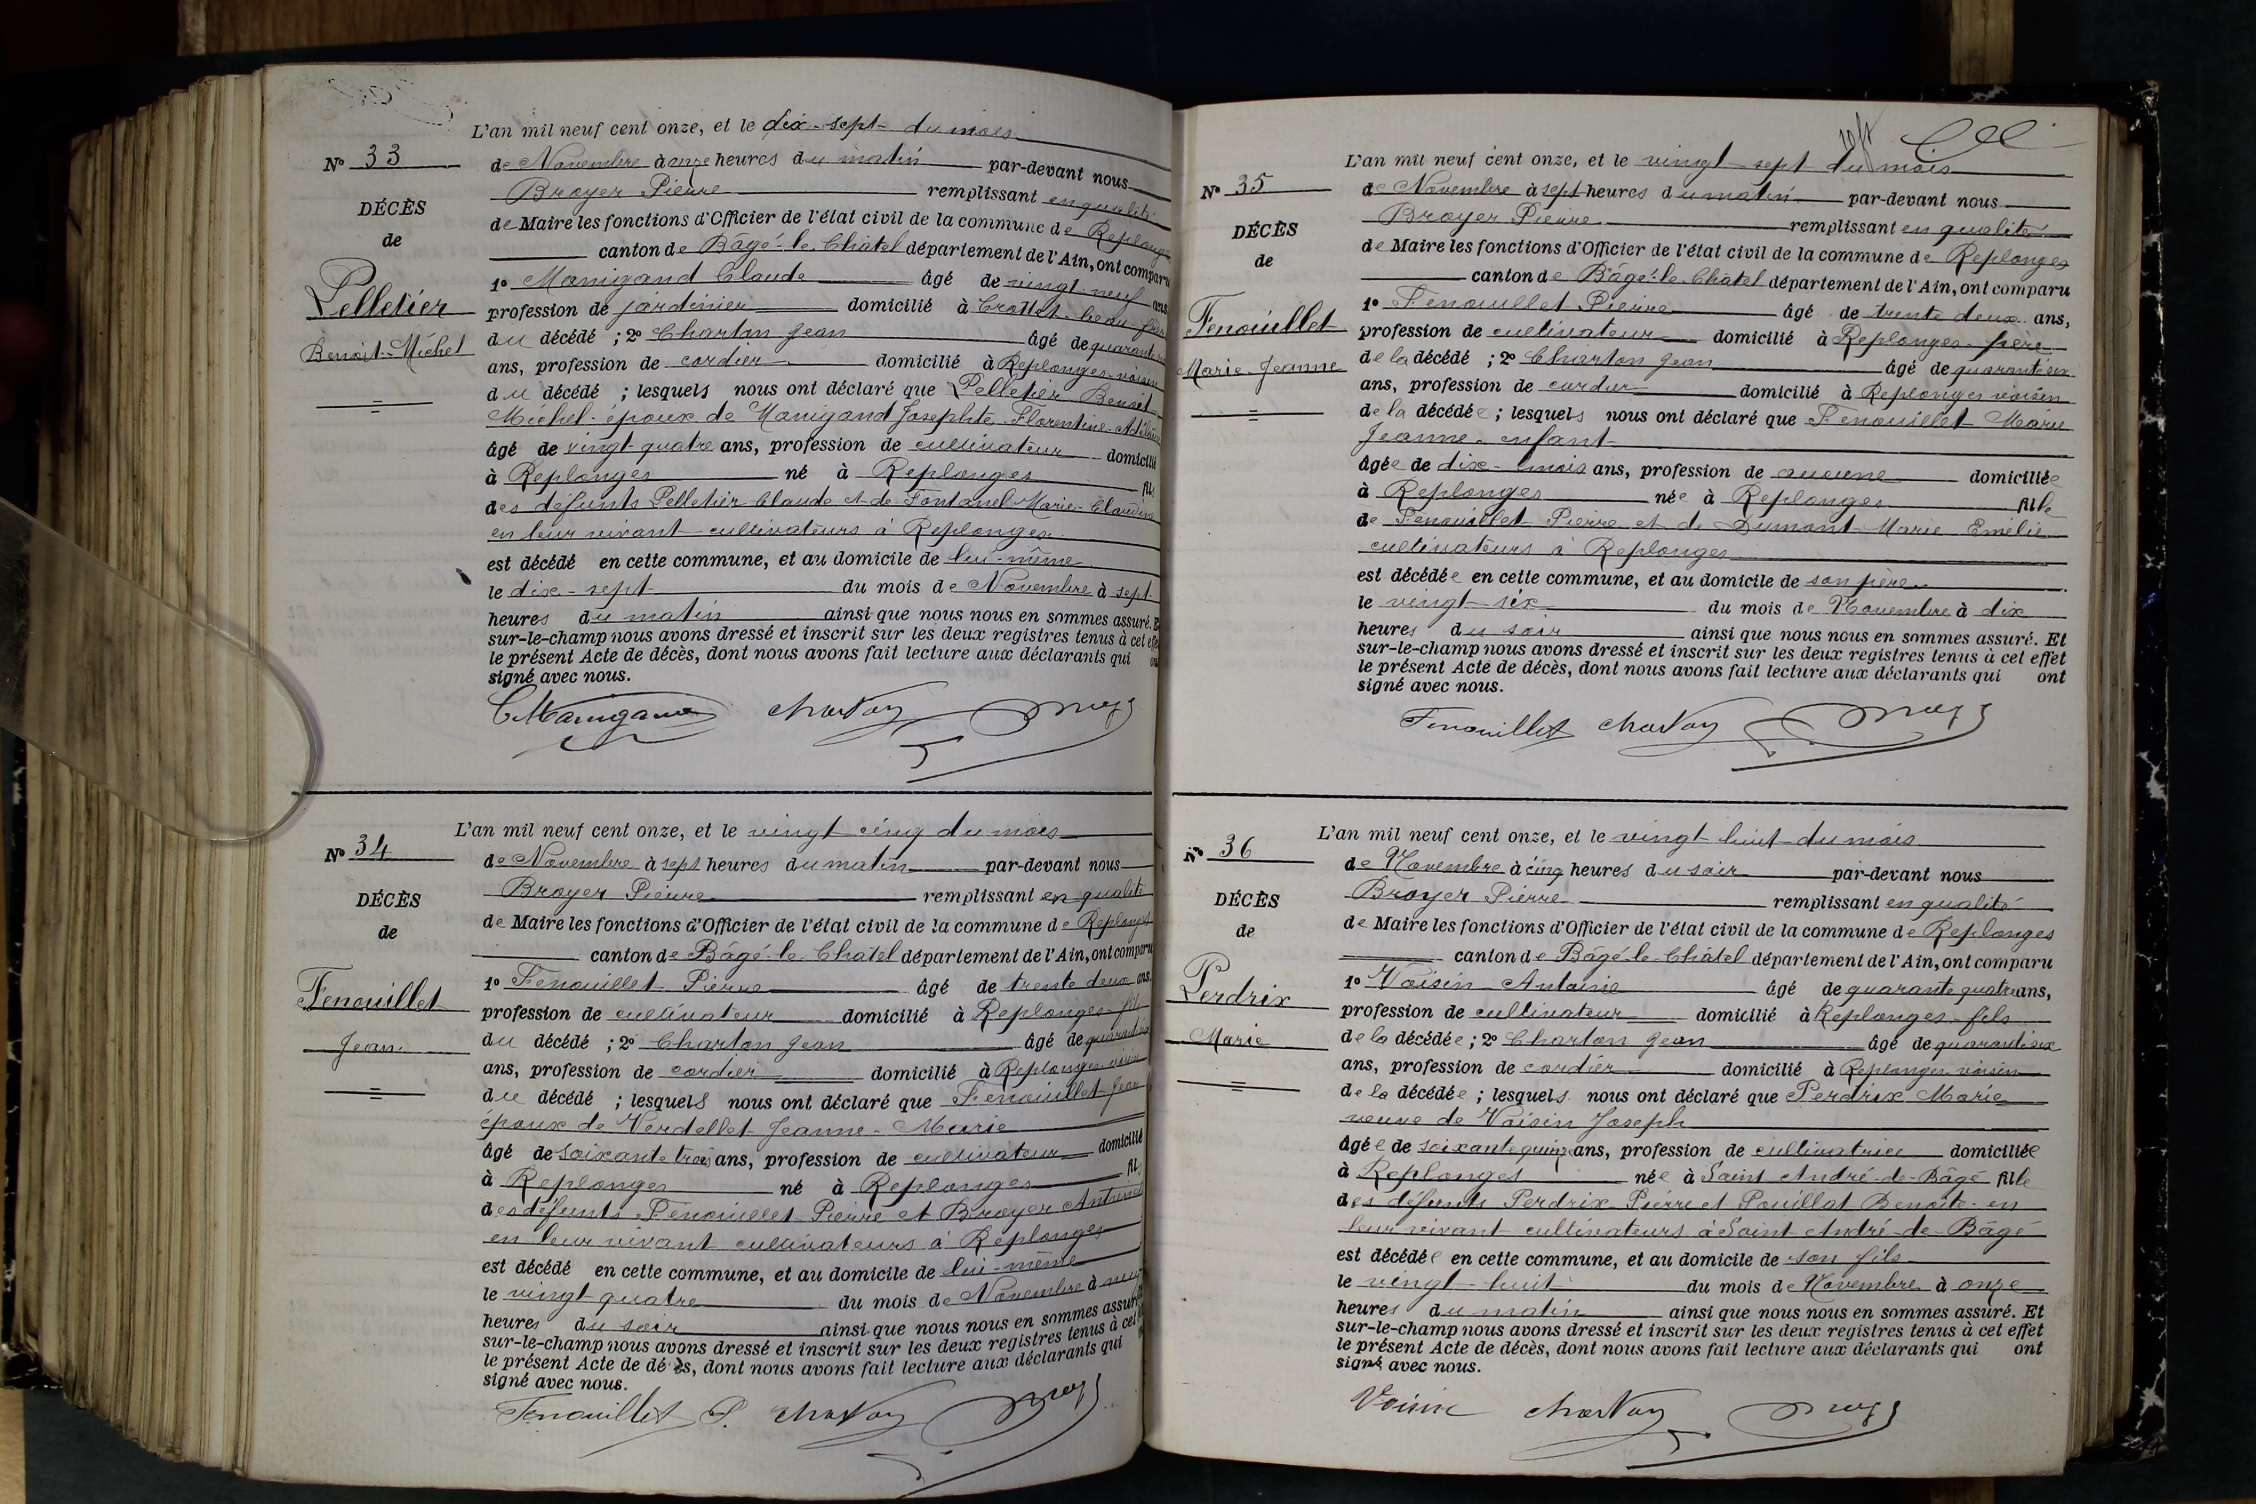 L'an mil neuf cent onze, et le dix-sept du mois
N° 33
de Novembre à onze heures du matin par-devant nous
Broyer Pierre remplissant en qualité
DÉCÈS
de Maire les fonctions d'Officier de l'état civil de la commune de Replonges
de
canton de Bâgé-le-Châtel département de l'Ain, ont comparu
1° Manigand Claude âgé de vingt-neuf ans
Pelletier
profession de jardinier domicilié à Crottet beau-frère
Benoit-Michel
du décédé ; 2° Charton Jean âgé de quarante
ans, profession de cordier domicilié à Replonges voisin
du décédé ; lesquels nous ont déclaré que Pelletier Benoit
Michel époux de Manigand Josephte-Florentine
âgé de vingt-quatre ans, profession de cultivateur domicilié
à Replonges né à Replonges fils
des défunts Pelletier Claude et de Fontanel Marie-Claudine
en leur vivant cultivateurs à Replonges
est décédé en cette commune, et au domicile de lui-même
le dix-sept du mois de Novembre à sept
heures du matin ainsi que nous nous en sommes assuré. Et
sur-le-champ nous avons dressé et inscrit sur les deux registres tenus à cet effet
le présent Acte de décès, dont nous avons fait lecture aux déclarants qui ont
signé avec nous.
C Manigand Charton Broyer
L'an mil neuf cent onze, et le vingt cinq du mois
N° 34
de Novembre à sept heures du matin par-devant nous
Broyer Pierre remplissant en qualité
DÉCÈS
de Maire les fonctions d'Officier de l'état civil de la commune de Replonges
de
canton de Bâgé-le-Châtel département de l'Ain, ont comparu
1° Fenouillet Pierre âgé de trente deux ans,
Fenouillet
profession de cultivateur domicilié à Replonges fils
Jean
du décédé ; 2° Charton Jean âgé de quarante six
ans, profession de cordier domicilié à Replonges voisin
du décédé ; lesquels nous ont déclaré que Fenouillet Jean
époux de Verdellet Jeanne-Marie
âgé de soixante trois ans, profession de cultivateur domicilié
à Replonges né à Replonges fils
des défunts Fenouillet Pierre et Broyer Antoinette
en leur vivant cultivateurs à Replonges
est décédé en cette commune, et au domicile de lui-même
le vingt quatre du mois de Novembre à neuf
heures du soir ainsi que nous nous en sommes assuré
sur-le-champ nous avons dressé et inscrit sur les deux registres tenus à cet
le présent Acte de décès, dont nous avons fait lecture aux déclarants qui
signé avec nous.
Fenouillet P. Charton Broyer
L'an mil neuf cent onze, et le vingt-sept du mois
N° 35
de Novembre à sept heures du matin par-devant nous
Broyer Pierre remplissant en qualité
DÉCÈS
de Maire les fonctions d'Officier de l'état civil de la commune de Replonges
de
canton de Bâgé-le-Châtel département de l'Ain, ont comparu
1° Fenouillet Pierre âgé de trente deux ans,
Fenouillet
profession de cultivateur domicilié à Replonges père
Marie-Jeanne
de la décédé ; 2° Charton Jean âgé de quarante six
ans, profession de cordier domicilié à Replonges voisin
de la décédée ; lesquels nous ont déclaré que Fenouillet Marie
Jeanne enfant
âgée de dix-mois ans, profession de aucune domiciliée
à Replonges née à Replonges fille
de Fenouillet Pierre et de Dumont Marie Emélie
cultivateurs à Replonges
est décédée en cette commune, et au domicile de son père
le vingt-six du mois de Novembre à dix
heures du soir ainsi que nous nous en sommes assuré. Et
sur-le-champ nous avons dressé et inscrit sur les deux registres tenus à cet effet
le présent Acte de décès, dont nous avons fait lecture aux déclarants qui ont
signé avec nous.
Fenouillet Charton Broyer
L'an mil neuf cent onze, et le vingt huit du mois
N° 36
de Novembre à cinq heures du soir par-devant nous
Broyer Pierre remplissant en qualité
DÉCÈS
de Maire les fonctions d'Officier de l'état civil de la commune de Replonges
de
canton de Bâgé-le-Châtel département de l'Ain, ont comparu
1° Voisin Antoine âgé de quarante quatre ans,
Perdrix
profession de cultivateur domicilié à Replonges fils
Marie
de la décédée ; 2° Charton Jean âgé de quarante six
ans, profession de cordier domicilié à Replonges voisin
de la décédée ; lesquels nous ont déclaré que Perdrix Marie
veuve de Voisin Joseph
âgée de soixante quinze ans, profession de cultivatrice domiciliée
à Replonges née à Saint André-de-Bâgé fille
des défunts Perdrix Pierre et Pouillat Benoite en
leur vivant cultivateurs à Saint André-de-Bâgé
est décédée en cette commune, et au domicile de son fils
le vingt-huit du mois de Novembre à onze
heures du matin ainsi que nous nous en sommes assuré. Et
sur-le-champ nous avons dressé et inscrit sur les deux registres tenus à cet effet
le présent Acte de décès, dont nous avons fait lecture aux déclarants qui ont
signé avec nous.
Voisin Charton Broyer